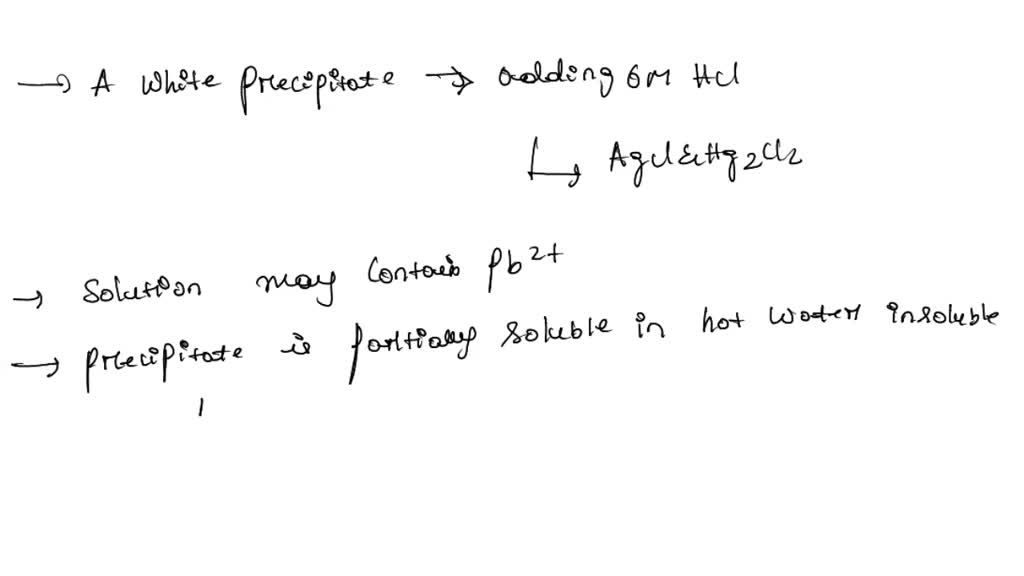 → A white precipitate → adding 6M HCl
↳ AgCl & Hg2Cl2
→ Solution may contain Pb2+
→ precipitate is partially soluble in hot water insoluble